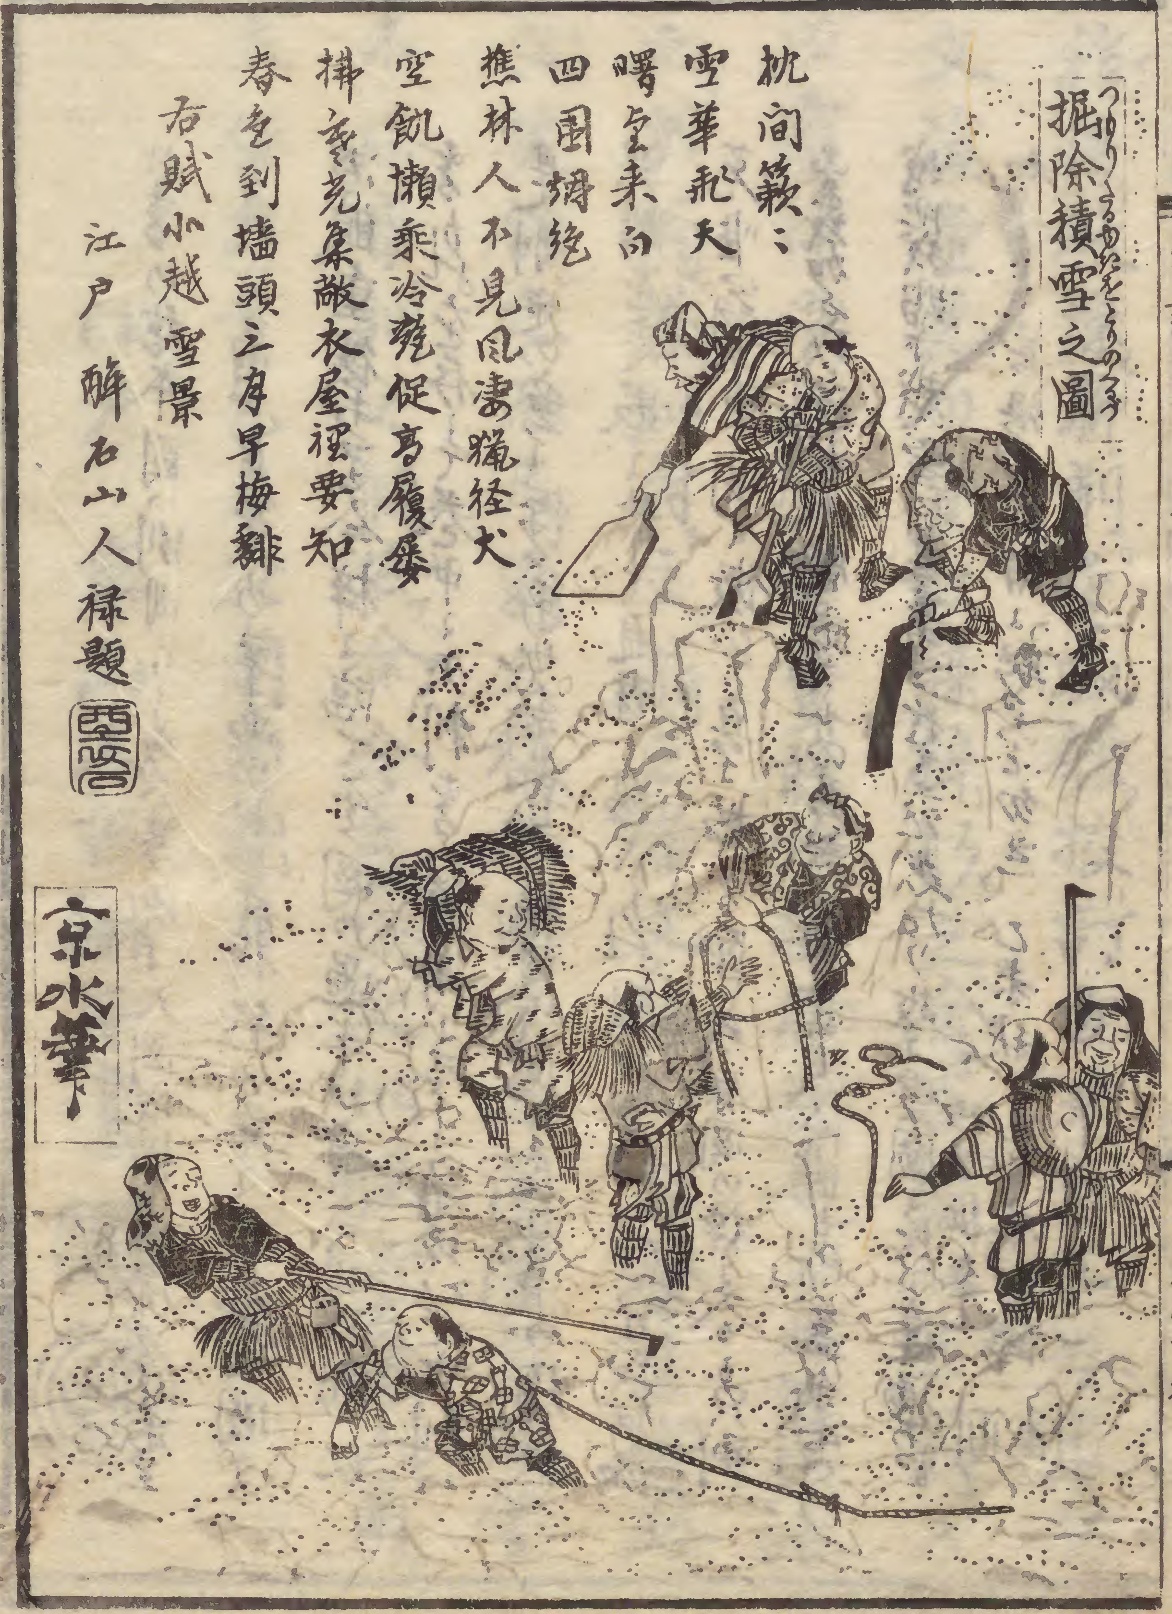 掘除積雪之圖
つもりたるゆきをとりのくるづ
枕間簌〻
雪華飛天
曙望来白
四囲烟絶
樵林人不見風凄猟径犬
空飢懶乗冷甕促高履屡
拂寒光集敞衣屋裡要知
春色到墻頭三月早梅馡
右賦北越雪景
江戸 酔石山人禄題
京水筆